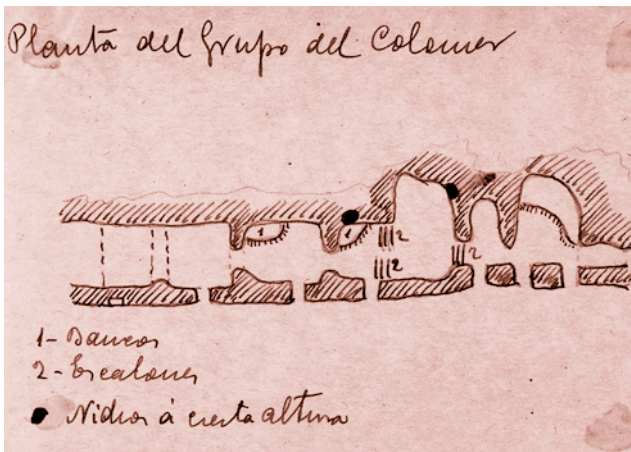 Planta del Grupo del Colomer
1
1
2
2
2
1- Bancos
2- Escalones
Nichos á cierta altura